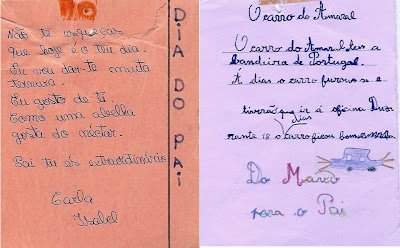 Não te esqueças
que hoje é o teu dia.
Eu vou dar-te muita
ternura.
Eu gosto de ti
Como uma abelha
gosta do néctar.
Pai tu és extraordinário
Carla
Isabel
DIA DO PAI
O carro do Amaral
O carro do Amaral tem a
bandeira de Portugal.
À dias o carro furou-se e
tiverão que ir á oficina Du
rante 18 dias o carro ficou
Do Marco
para o Pai